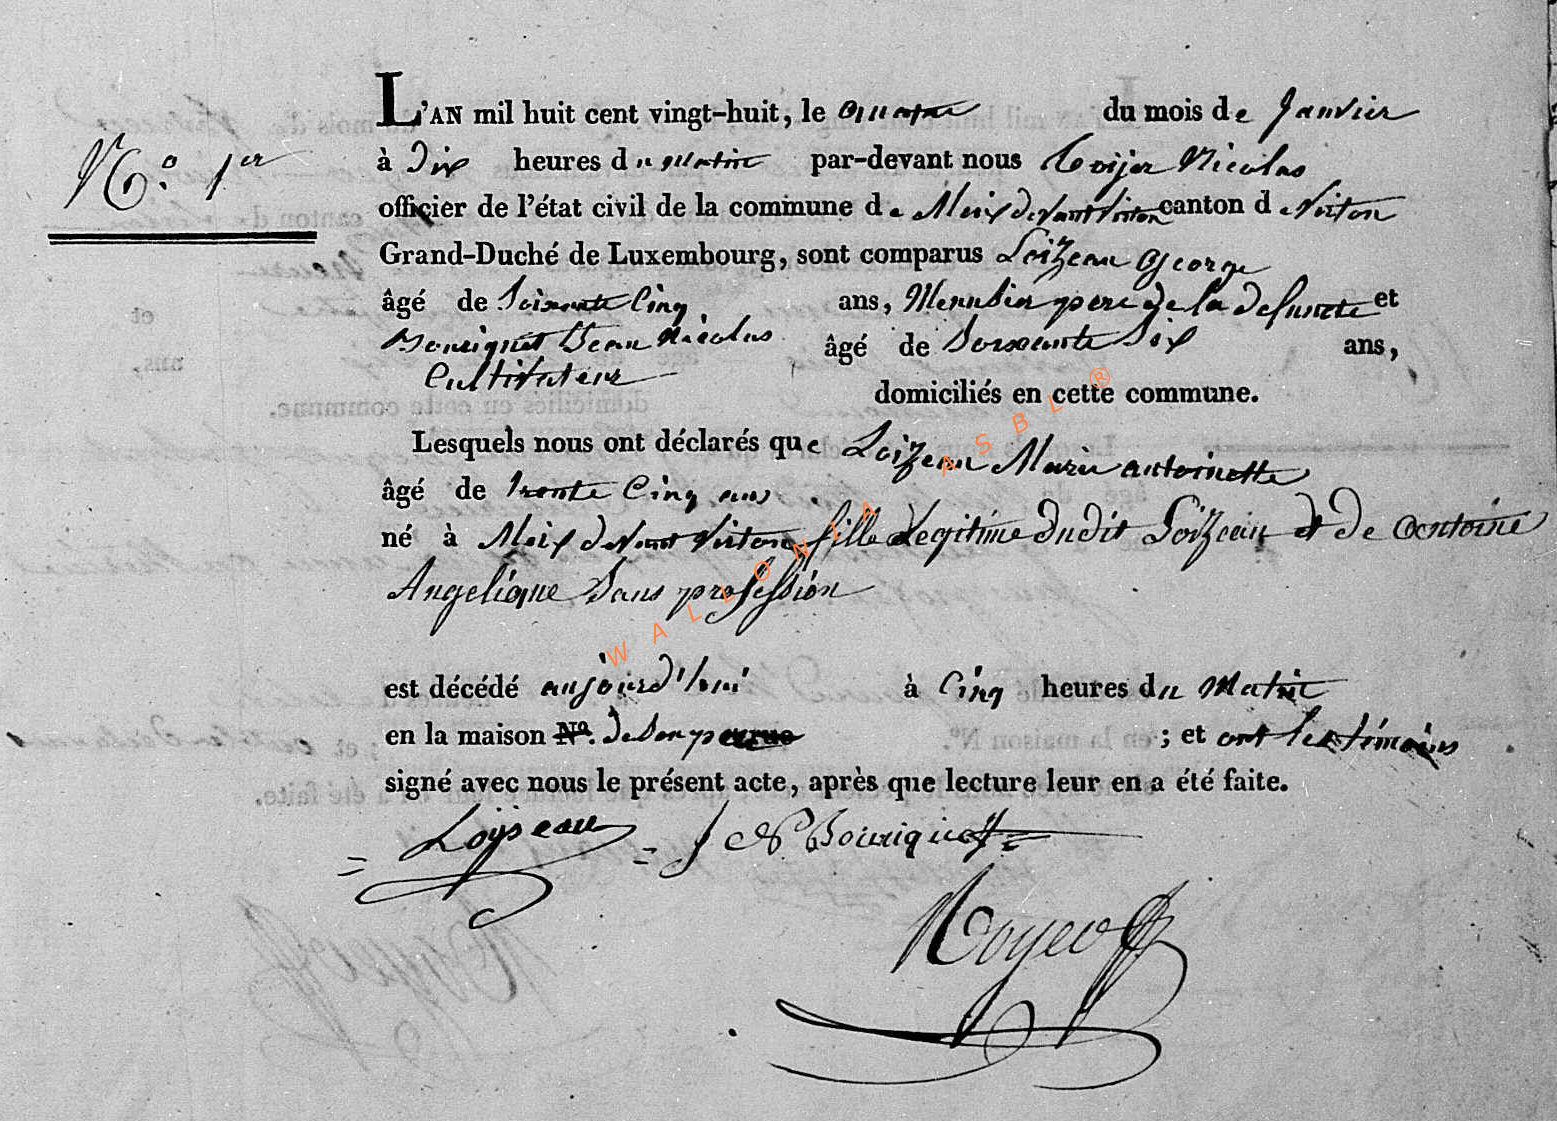 N.o 1er
L'AN mil huit cent vingt-huit, le onze du mois de Janvier
à Dix heures du matin par-devant nous Roijer Nicolas
officier de l'état civil de la commune de Meix devant Virton canton de Virton
Grand-Duché de Luxembourg, sont comparus Loizeau George
âgé de Soixante Cinq ans, Menusier pere de la defuncte et
Bouriquet Jean Nicolas âgé de Soixante Six ans,
Cultivateur
domiciliés en cette commune.
Lesquels nous ont déclarés que Loizeau Marie antoinette
âgé de trente Cinq ans
né à Meix devant Virton fille Legitime dudit Loizeau et de Antoine
Angelique Sans profession
est décédé aujourd'hui à Cinq heures du Matin
en la maison No. de Son pere ; et ont les témoins
signé avec nous le présent acte, après que lecture leur en a été faite.
Loyseau = J N Bouriquet
Royer
WALLONIA ASBL ®